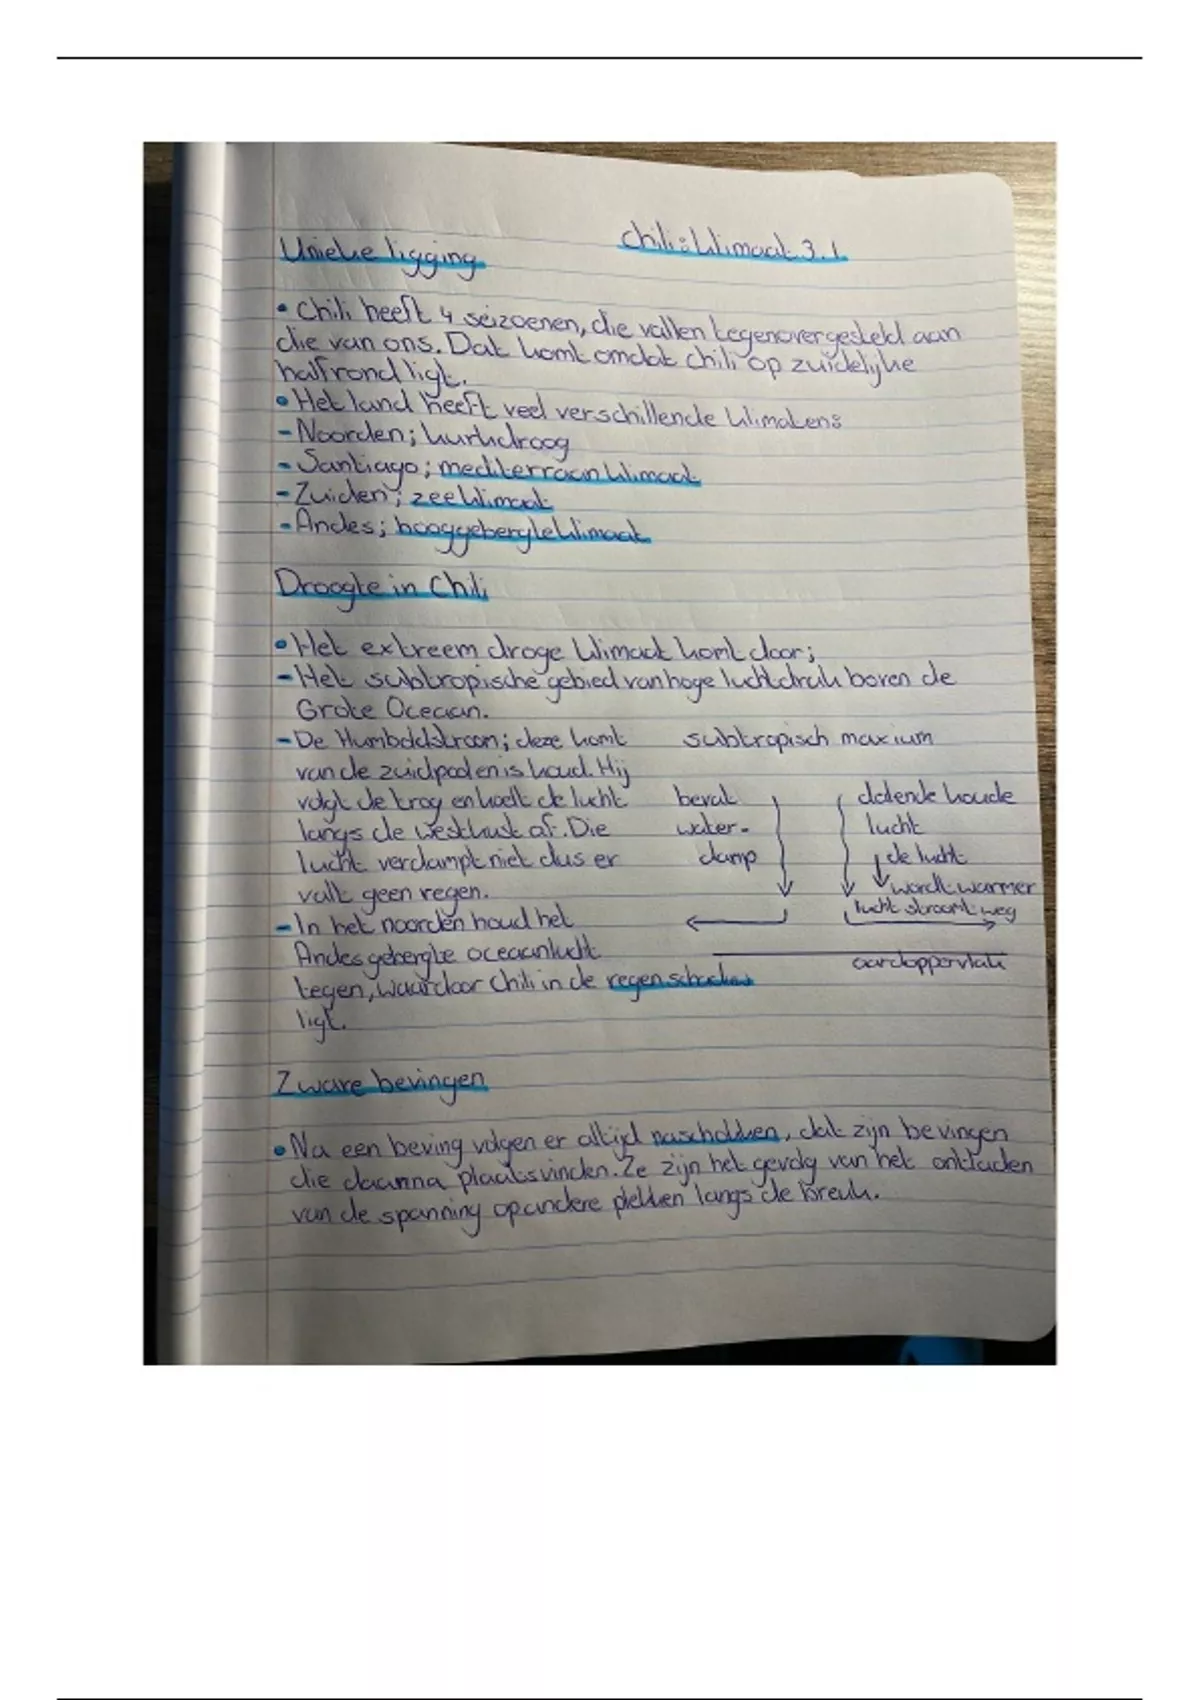 Chili: klimaat 3.1
Unieke ligging
• Chili heeft 4 seizoenen, die vallen tegenovergesteld aan
die van ons. Dat komt omdat chili op zuidelijke
halfrond ligt.
• Het land heeft veel verschillende klimaten:
- Noorden; kurkdroog
- Santiago; mediterraan klimaat
- Zuiden; zeeklimaat
- Andes; hooggebergteklimaat
Droogte in Chili
• Het extreem droge klimaat komt door;
- Het subtropische gebied van hoge luchtdruk boven de
Grote Oceaan.
- De Humboldstroom; deze komt
van de zuidpool en is koud. Hij
volgt de trog en koelt de lucht
langs de westkust af. Die
lucht verdampt niet dus er
valt geen regen.
- In het noorden houd het
Andesgebergte oceaanlucht
tegen, waardoor Chili in de regenschaduw
ligt.
subtropisch maxium
bevat
water-
damp
dalende koude
lucht
de lucht
wordt warmer
lucht stroomt weg
aardoppervlak
Zware bevingen
• Na een beving volgen er altijd naschokken, dat zijn bevingen
die daarna plaatsvinden. Ze zijn het gevolg van het ontladen
van de spanning op andere plekken langs de breuk.